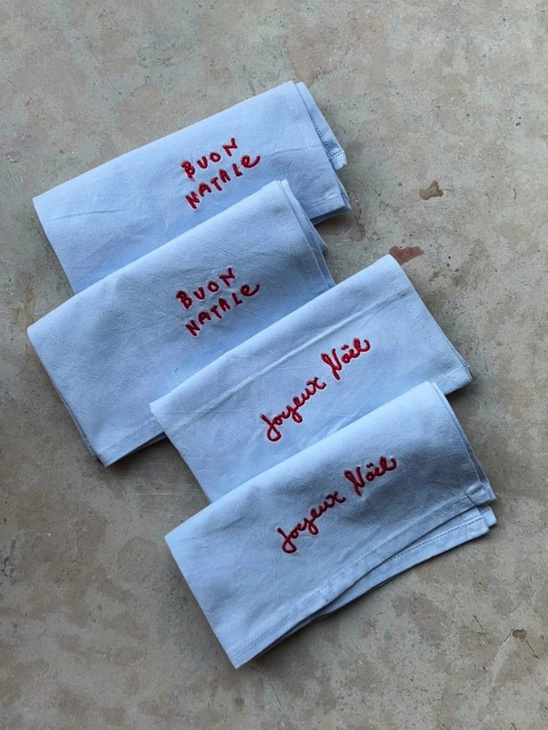 BUON
NATALe
BUON
NATALe
Joyeux Noël
Joyeux Noël